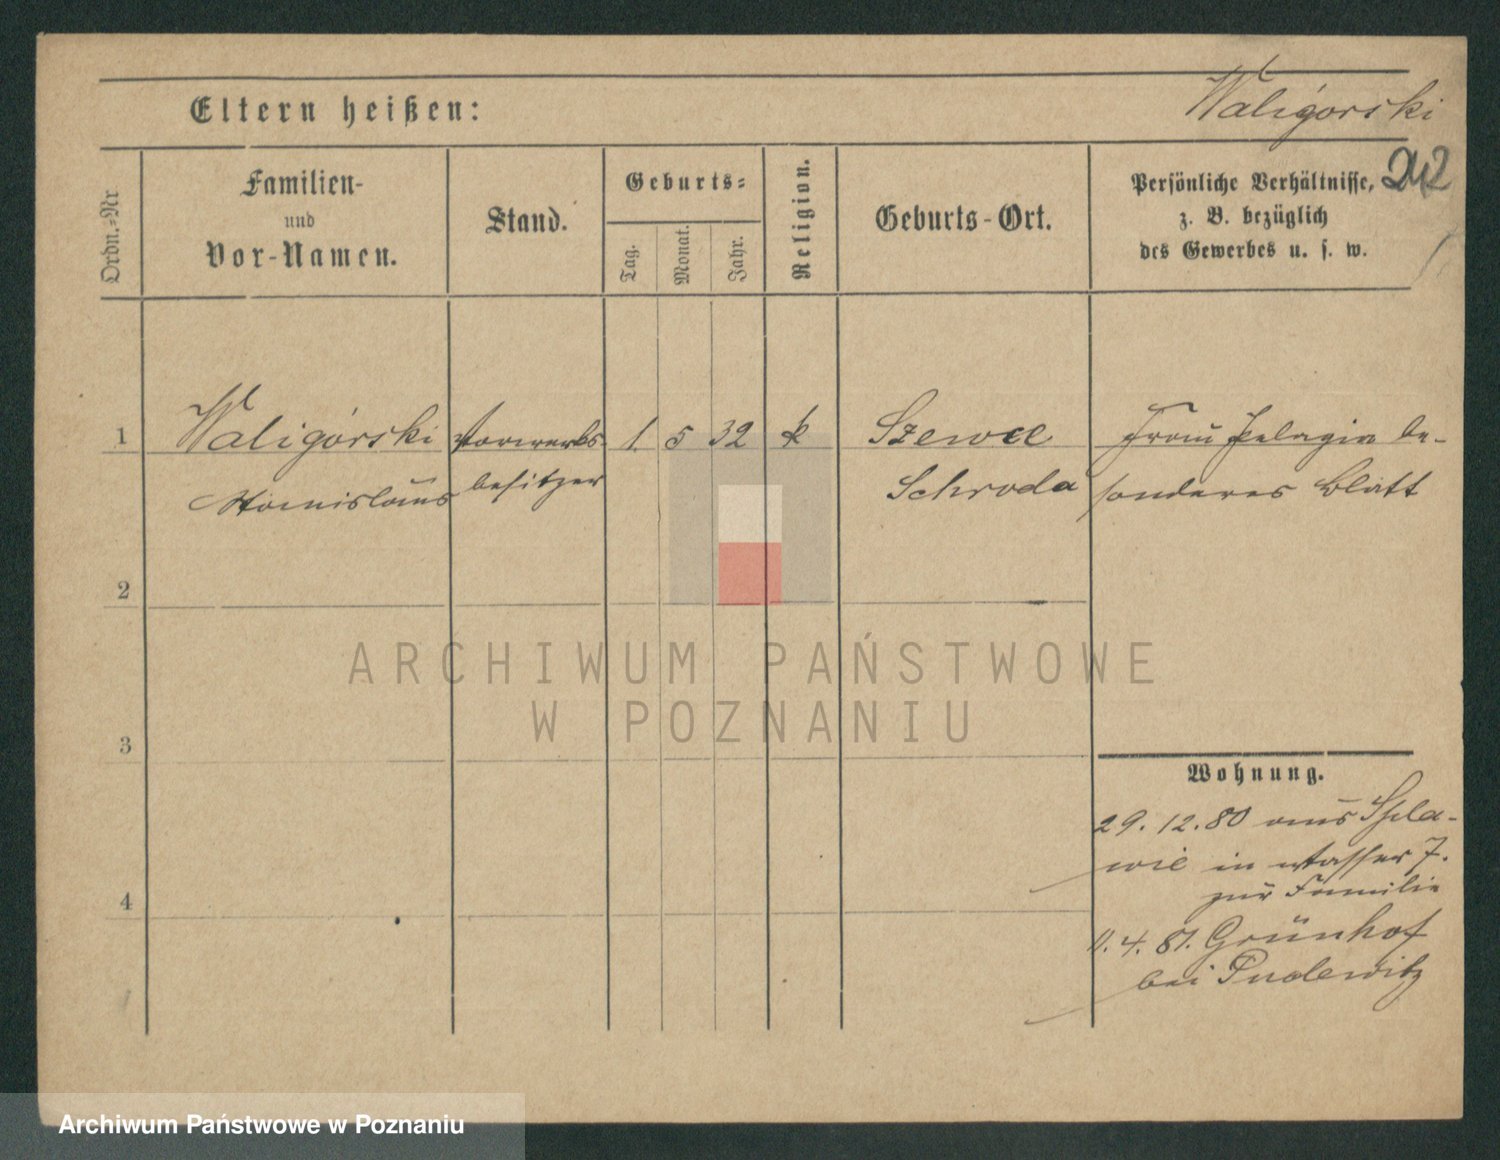 Waligórski
Eltern heißen:
242
Ordn.-Nr
Familien-
und
Vor-Namen.
Stand.
Geburts-
Tag.
Monat.
Jahr.
Religion.
Geburts-Ort.
Persönliche Verhältnisse,
z. B. bezüglich
des Gewerbes u. s. w.
1 Waligórski Vorwerks- 1. 5 32 k Szewce Frau Pelagia be-
Stanislaus besitzer Schroda sonderes Blatt
2
3
4
Wohnung.
29. 12. 80 aus Spla-
wie in Wasser 7.
zur Familie
11. 4. 81. Grünhof
bei Pudewitz
ARCHIWUM PAŃSTWOWE
W POZNANIU
Archiwum Państwowe w Poznaniu